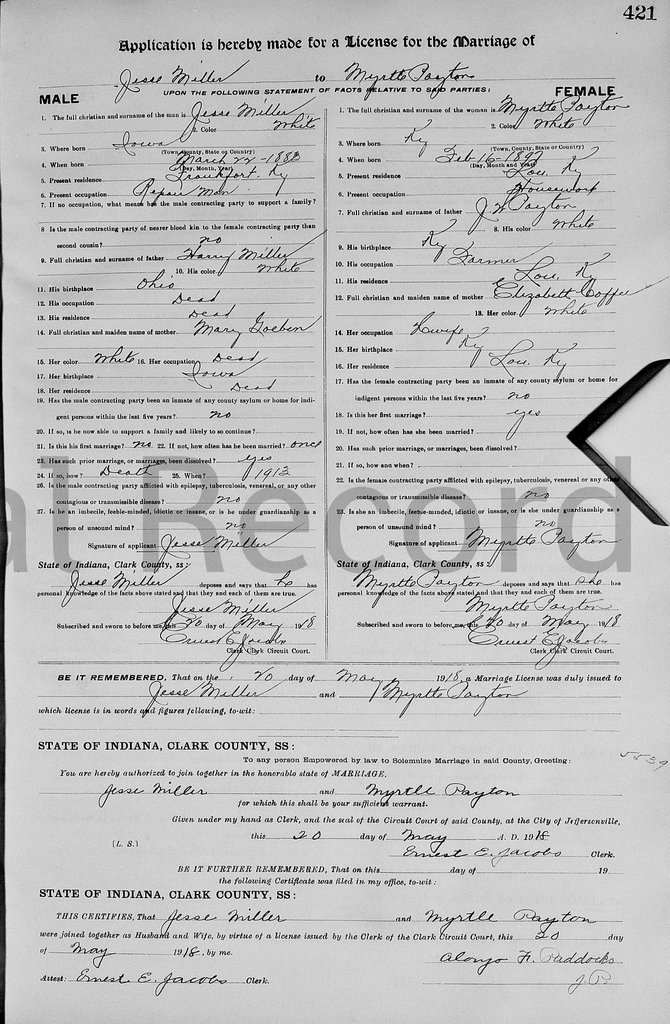 421
Application is hereby made for a License for the Marriage of
Jesse Miller to Myrtle Payton
UPON THE FOLLOWING STATEMENT OF FACTS RELATIVE TO SAID PARTIES:
MALE
1. The full christian and surname of the man is Jesse Miller
2. Color White
3. Where born Iowa
(Town, County, State or Country)
4. When born March 22-1883
(Day, Month, Year)
5. Present residence Frankfort, Ky
6. Present occupation Repair Man
7. If no occupation, what means has the male contracting party to support a family?
8 Is the male contracting party of nearer blood kin to the female contracting party than
second cousin? no
9. Full christian and surname of father Harry Miller
10. His color White
11. His birthplace Ohio
12. His occupation Dead
13. His residence Dead
14. Full christian and maiden name of mother Mary Goeben
15. Her color White 16. Her occupation Dead
17. Her birthplace Iowa
18. Her residence Dead
19. Has the male contracting party been an inmate of any county asylum or home for indi-
gent persons within the last five years? no
20. If so, is he now able to support a family and likely to so continue?
21. Is this his first marriage? no 22. If not, how often has he been married? once
23. Has such prior marriage, or marriages, been dissolved? yes
24. If so, how? Death 25. When? 1913
26. Is the male contracting party afflicted with epilepsy, tuberculosis, venereal, or any other
contagious or transmissible disease? no
27. Is he an imbecile, feeble-minded, idiotic or insane, or is he under guardianship as a
person of unsound mind? no
Signature of applicant Jesse Miller
State of Indiana, Clark County, ss:
Jesse Miller deposes and says that he has
personal knowledge of the facts above stated and that they and each of them are true.
Jesse Miller
Subscribed and sworn to before me, this 20 day of May 1918
Ernest E. Jacobs
Clerk Clark Circuit Court.
FEMALE
1. The full christian and surname of the woman is Myrtle Payton
2. Color White
3. Where born Ky
(Town, County, State or Country)
4. When born Feb 16-1897
(Day, Month and Year)
5. Present residence Lou. Ky
6. Present occupation Housework
7. Full christian and surname of father J W Payton
8. His color White
9. His birthplace Ky
10. His occupation Farmer
11. His residence Lou. Ky
12. Full christian and maiden name of mother Elizabeth Coffee
13. Her color White
14. Her occupation Hwife
15. Her birthplace Ky
16. Her residence Lou. Ky
17. Has the female contracting party been an inmate of any county asylum or home for
indigent persons within the last five years? no
18. Is this her first marriage? yes
19. If not, how often has she been married?
20. Has such prior marriage, or marriages, been dissolved?
21. If so, how and when?
22. Is the female contracting party afflicted with epilepsy, tuberculosis, venereal, or any other
contagious or transmissible disease? no
23. Is she an imbecile, feeble-minded, idiotic or insane, or, is she under guardianship as a
person of unsound mind? no
Signature of applicant Myrtle Payton
State of Indiana, Clark County, ss:
Myrtle Payton deposes and says that she has
personal knowledge of the facts above stated and that they and each of them are true.
Myrtle Payton
Subscribed and sworn to before me, this 20 day of May 1918
Ernest E. Jacobs
Clerk Clark Circuit Court.
at Record
BE IT REMEMBERED, That on the 20 day of May 1918, a Marriage License was duly issued to
Jesse Miller and Myrtle Payton
which license is in words and figures following, to-wit:
STATE OF INDIANA, CLARK COUNTY, SS:
5539
To any person Empowered by law to Solemnize Marriage in said County, Greeting:
You are hereby authorized to join together in the honorable state of MARRIAGE.
Jesse Miller and Myrtle Payton
for which this shall be your sufficient warrant.
Given under my hand as Clerk, and the seal of the Circuit Court of said County, at the City of Jeffersonville,
this 20 day of May A. D. 1918
[L. S.]
Ernest E. Jacobs Clerk.
BE IT FURTHER REMEMBERED, That on this day of 19
the following Certificate was filed in my office, to-wit:
STATE OF INDIANA, CLARK COUNTY, SS:
THIS CERTIFIES, That Jesse Miller and Myrtle Payton
were joined together as Husband and Wife, by virtue of a license issued by the Clerk of the Clark Circuit Court, this 20 day
of May 1918, by me. Alonzo F. Paddocks
Attest: Ernest E. Jacobs Clerk. J.P.